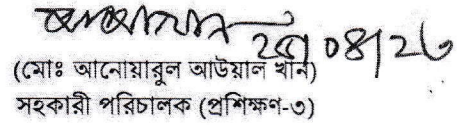 (মোঃ আনোয়ারুল আউয়াল খান)
সহকারী পরিচালক (প্রশিক্ষণ-৩)